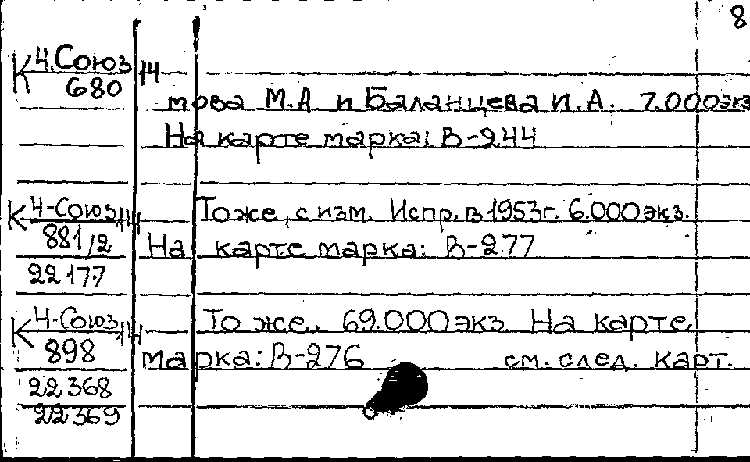 8
К 4.Союз/14
680
това М.А и Баланцева И.А. 7.000экз
На карте марка: В-244
К 4-Союз/14
881/2
22177
То же, с изм. Испр. в 1953г. 6.000 экз.
На карте марка: В-277
К 4-Союз/14
898
22368
22369
То же. 69.000 экз На карте
марка: В-276 см. след. карт.